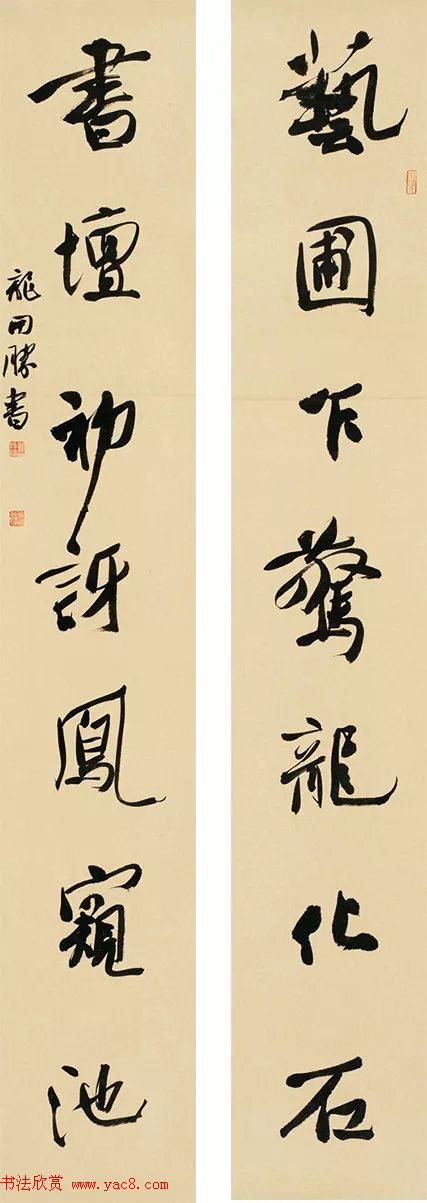 藝圃乍驚龍化石
書壇初訝鳳窺池
龍開勝書
书法欣赏 www.yac8.com